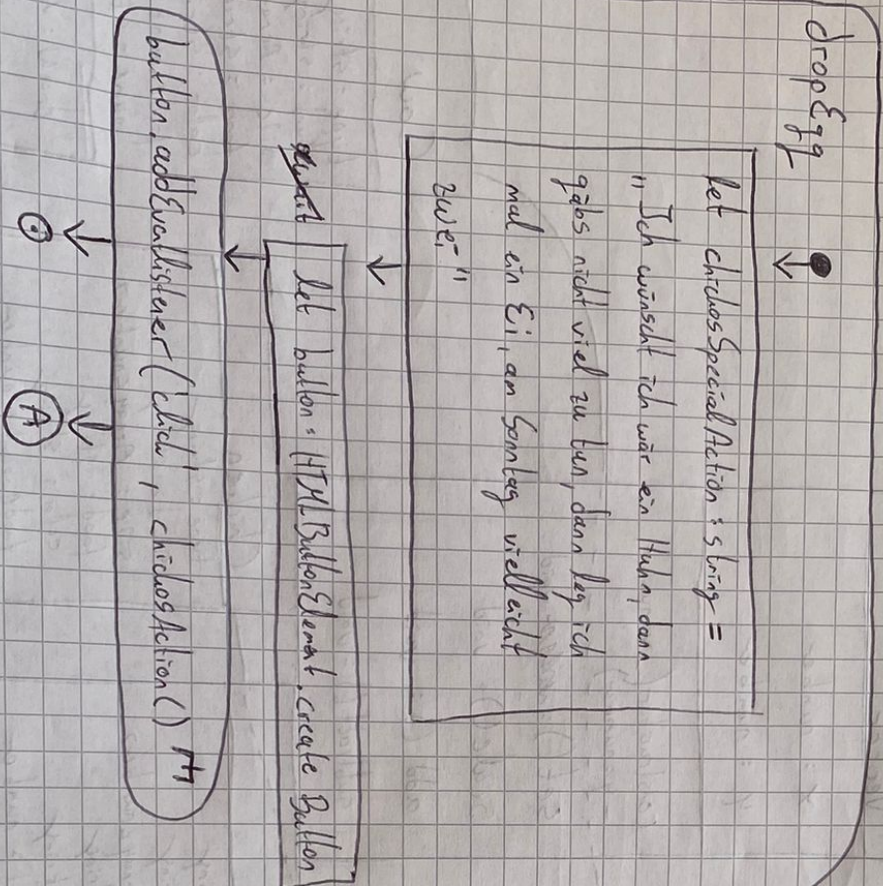 dropEgg
let chichosSpecialAction : string =
"Ich wünscht ich wär ein Huhn, dann
gäbs nicht viel zu tun, dann leg ich
mal ein Ei, am Sonntag vielleicht
zwei"
let button : HTMLButtonElement. create Button
button. addEvenListener ('click', chichosAction()
A